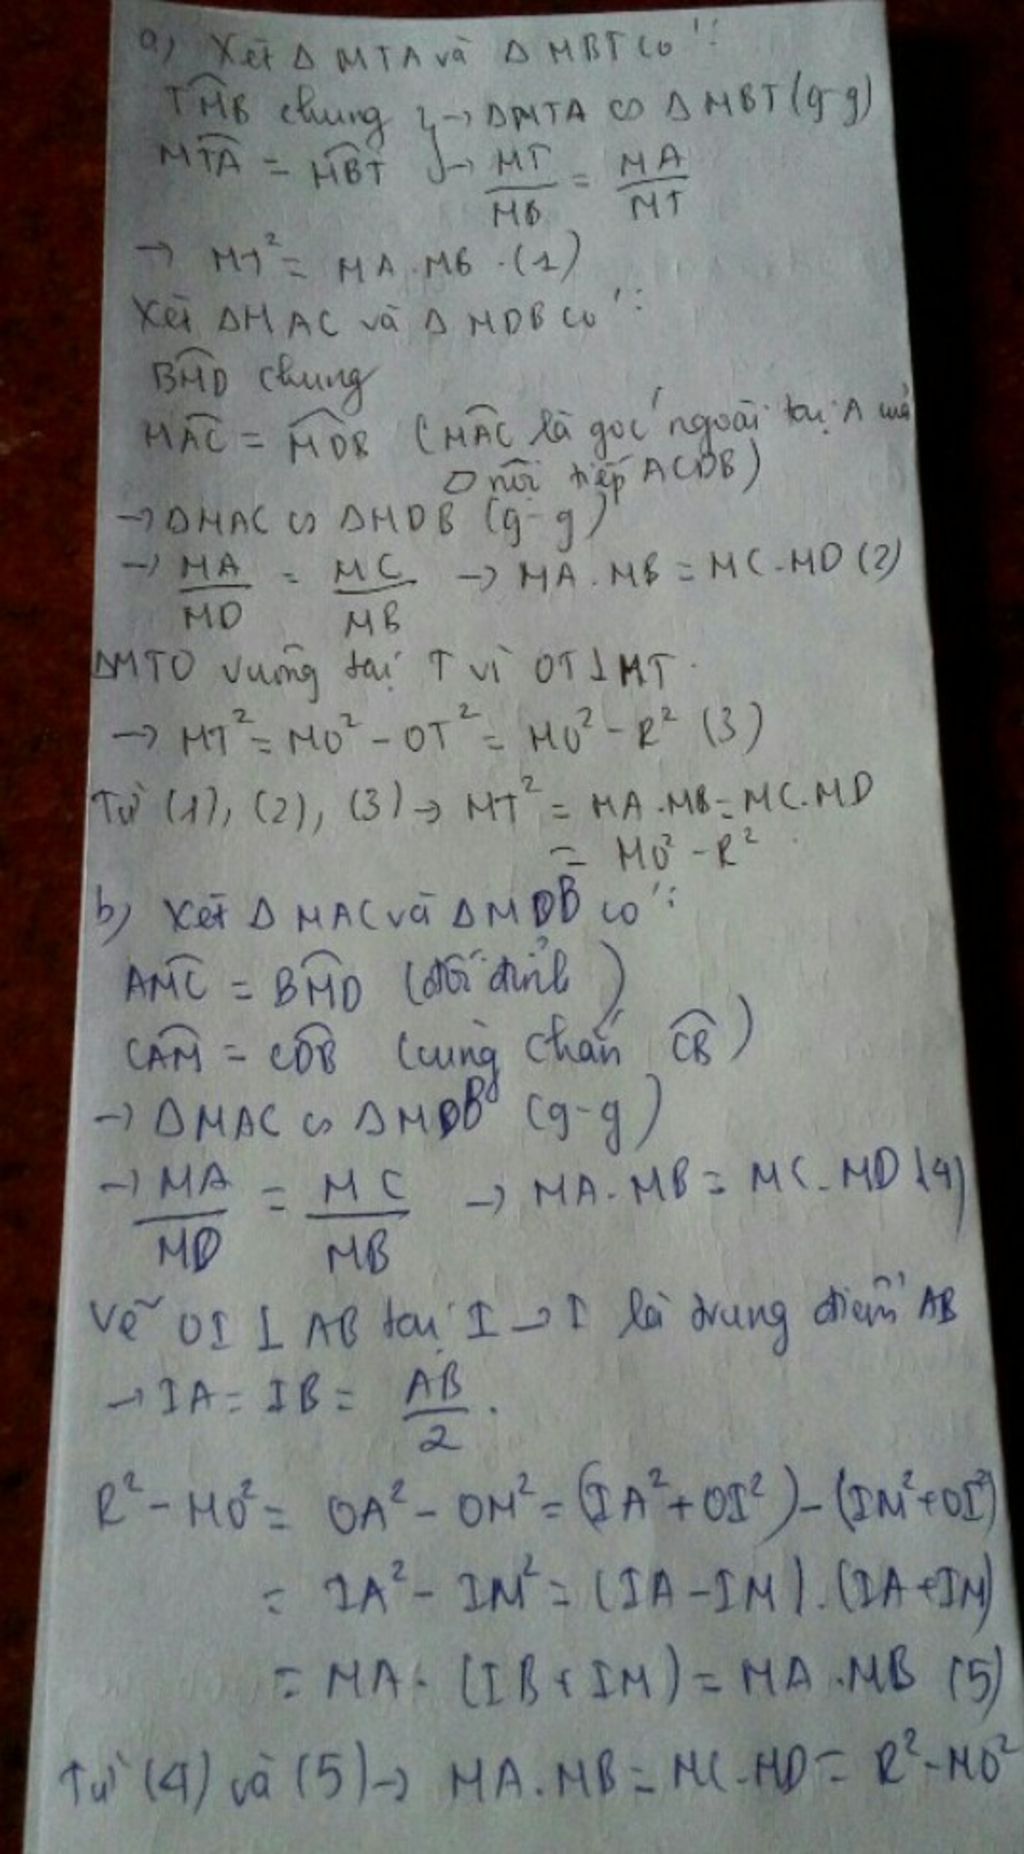 a) Xét Δ MTA và Δ MBT có :
T̂MB chung } → ΔMTA ∽ Δ MBT (g-g)
M̂TA = M̂BT } → MT/MB = MA/MT
→ MT² = MA.MB. (1)
Xét ΔMAC và Δ MDB có :
B̂MD chung
M̂AC = M̂DB (M̂AC là góc ngoài tại A của
▱ nội tiếp ACDB)
→ ΔMAC ∽ ΔMDB (g-g)
→ MA/MD = MC/MB → MA.MB = MC.MD (2)
ΔMTO vuông tại T vì OT⊥MT.
→ MT² = MO² - OT² = MO² - R² (3)
Từ (1), (2), (3) → MT² = MA.MB = MC.MD
= MO² - R²
b) Xét Δ MAC và ΔMDB có :
ÂMC = B̂MD (đối đỉnh)
ĈAM = ĈDB (cùng chắn C͡B)
→ ΔMAC ∽ ΔMDB (g-g)
→ MA/MD = MC/MB → MA.MB = MC.MD (4)
Vẽ OI ⊥ AB tại I → I là trung điểm AB
→ IA = IB = AB/2.
R² - MO² = OA² - OM² = (IA² + OI²) - (IM² + OI²)
= IA² - IM² = (IA - IM).(IA + IM)
= MA.(IB + IM) = MA.MB (5)
Từ (4) và (5) → MA.MB = MC.MD = R² - MO²